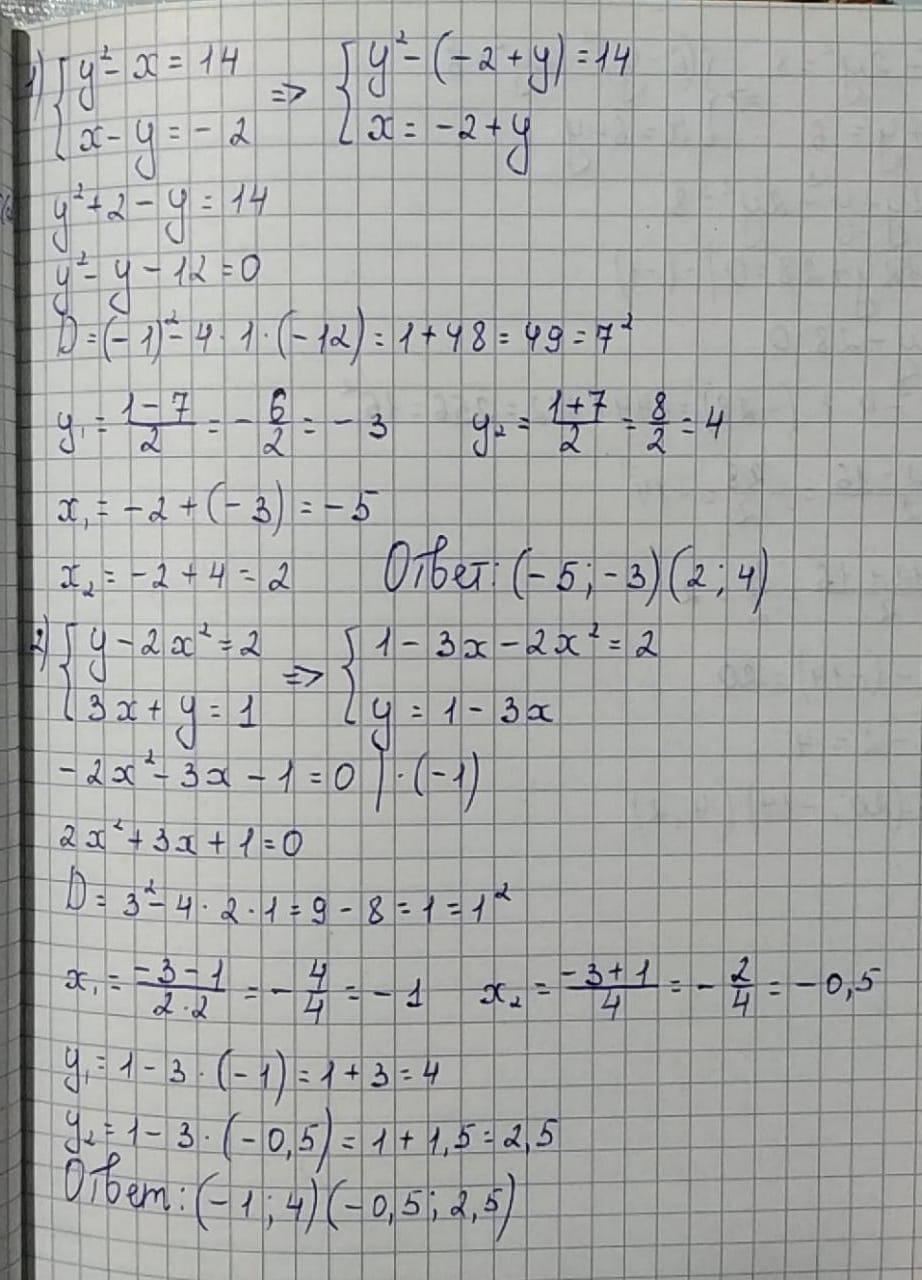 1) { y² - x = 14 => { y² - (-2 + y) = 14
x - y = - 2 x = -2 + y
y² + 2 - y = 14
y² - y - 12 = 0
D = (-1)² - 4 · 1 · (-12) = 1 + 48 = 49 = 7²
y₁ = (1 - 7)/2 = - 6/2 = - 3 y₂ = (1+7)/2 = 8/2 = 4
x₁ = -2 + (-3) = -5
x₂ = -2 + 4 = 2 Ответ: (-5; -3) (2; 4)
2) { y - 2x² = 2 => { 1 - 3x - 2x² = 2
3x + y = 1 y = 1 - 3x
-2x² - 3x - 1 = 0 | · (-1)
2x² + 3x + 1 = 0
D = 3² - 4 · 2 · 1 = 9 - 8 = 1 = 1²
x₁ = (-3 - 1)/(2·2) = - 4/4 = - 1 x₂ = (-3 + 1)/4 = - 2/4 = -0,5
y₁ = 1 - 3 · (-1) = 1 + 3 = 4
y₂ = 1 - 3 · (-0,5) = 1 + 1,5 = 2,5
Ответ: (-1; 4) (-0,5; 2,5)